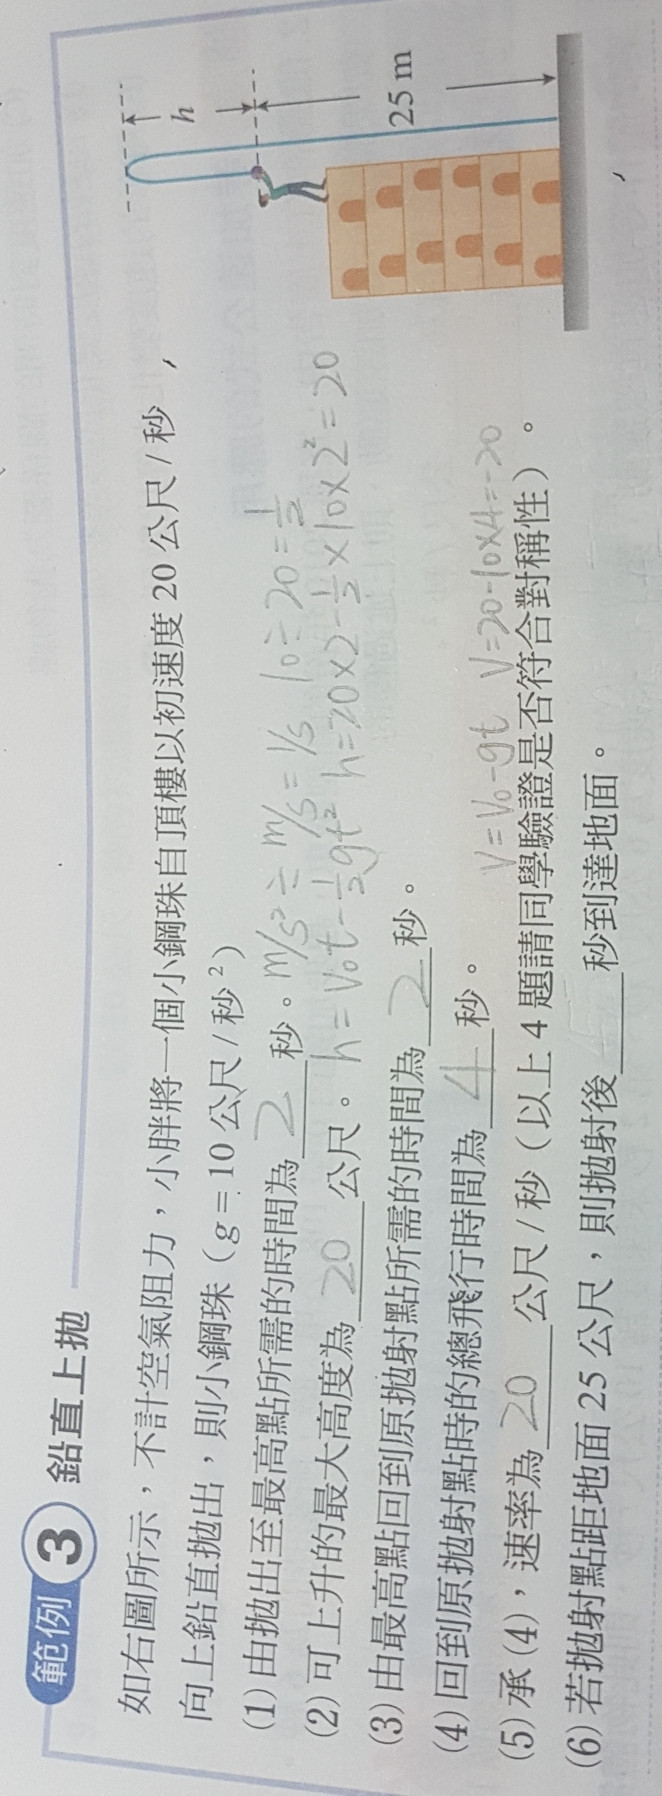 範例 3 鉛直上拋
如右圖所示，不計空氣阻力，小胖將一個小鋼珠自頂樓以初速度 20 公尺/秒，
向上鉛直拋出，則小鋼珠（g = 10 公尺/秒²）
(1) 由拋出至最高點所需的時間為 2 秒。 m/s² ÷ m/s = 1/s 10 ÷ 20 = 1/2
(2) 可上升的最大高度為 20 公尺。 h = V₀t - 1/2gt² h = 20×2 - 1/2×10×2² = 20
(3) 由最高點回到原拋射點所需的時間為 2 秒。
(4) 回到原拋射點時的總飛行時間為 4 秒。
V = V₀ - gt V = 20 - 10×4 = -20
(5) 承(4)，速率為 20 公尺/秒（以上 4 題請同學驗證是否符合對稱性）。
(6) 若拋射點距地面 25 公尺，則拋射後 5 秒到達地面。
h
25 m